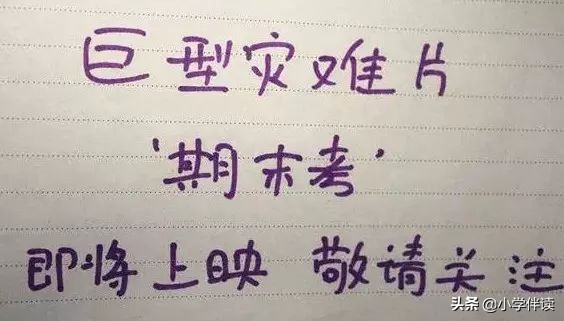 巨型灾难片
'期末考'
即将上映 敬请关注
头条@小学伴读